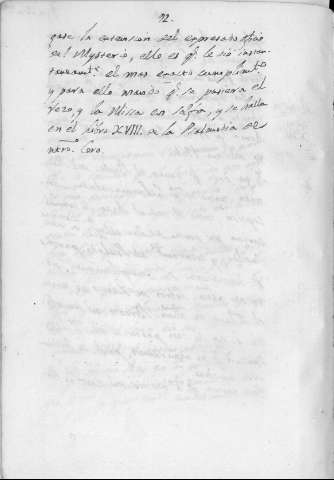 92.
gase la extension del expresado
en el Mysterio, ello es q.e le dio instan-
taneam.te el mas exacto cumplim.to
y para ello mandó q.e se pusiera el
rezo, y la Missa en solfa, y se halla
en el libro XVIII. de la Psalmodia de
ntro. Coro.